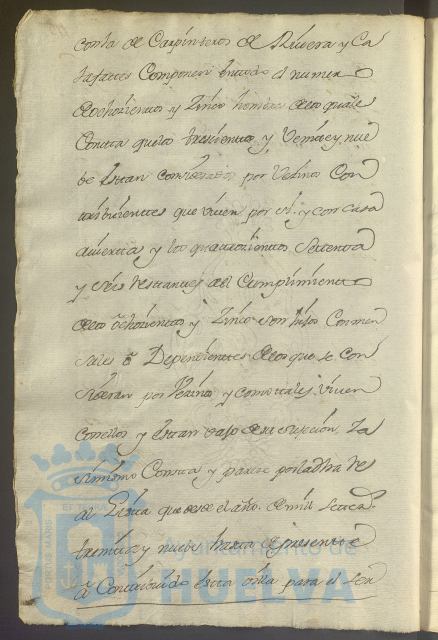 con la de Carpinteros de Rivera y Ca
lafates Componen en todo el numero
de ochozientos y Zinco hombres de los quales
Consta que los trescientos y Veinte y nue
be Estan considerados por Vezinos Con
tribuientes que viven por si, y con casa
avierta y los quatrozientos Setenta
y seis restantes del Cumplimiento
de los ochozientos y Zinco son hijos Comen
sales o Dependientes de los que se con
sideran por Vezinos, y como tales viven
con ellos y Estan vajo de su
simismo Consta y parece por la
de que desde el año de mil setecs.
treinta y nueve hasta el presente
a Contribuido Esta villa para el
Ayuntamiento de
HUELVA